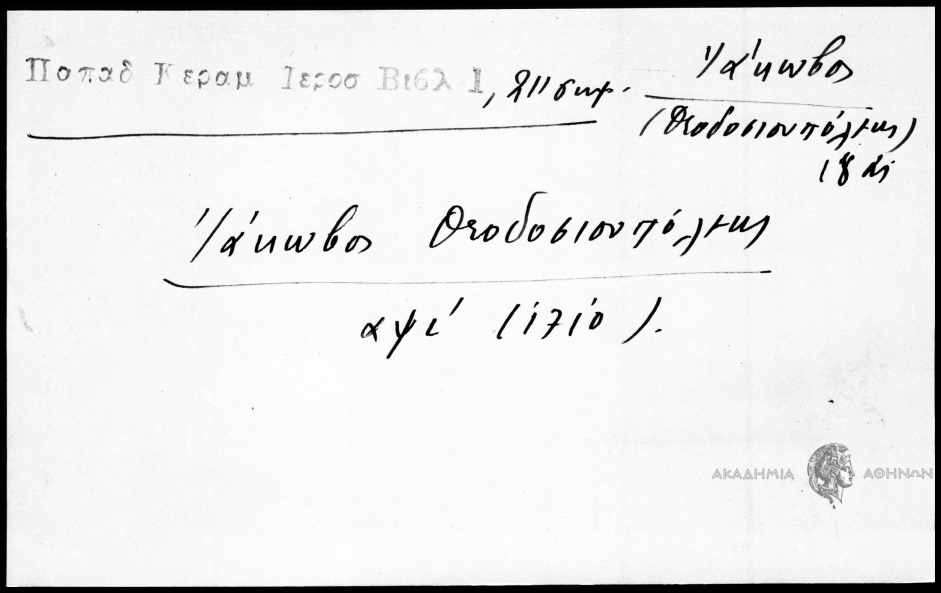 Παπαδ Κεραμ Ιεροσ Βιβλ 1, 211 σημ.
Ἰάκωβος
(Θεοδοσιουπόλεως)
18 αι
Ἰάκωβος Θεοδοσιουπόλεως
αψι΄ (1710).
ΑΚΑΔΗΜΙΑ ΑΘΗΝΩΝ